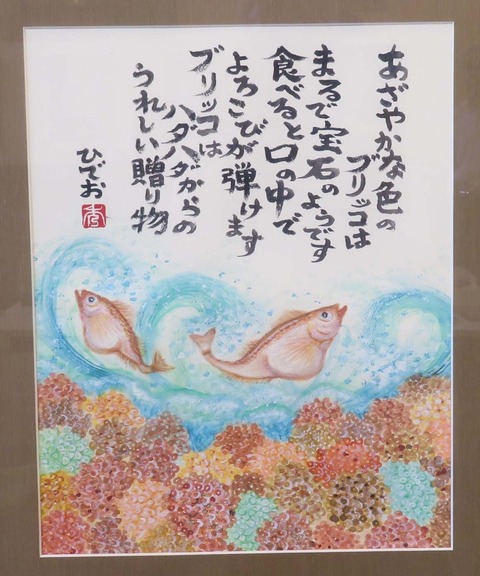 あざやかな色の
ブリッコは
まるで宝石のようです
食べると口の中で
よろこびが弾けます
ブリッコは
ハタハタからの
うれしい贈り物
ひでお
秀